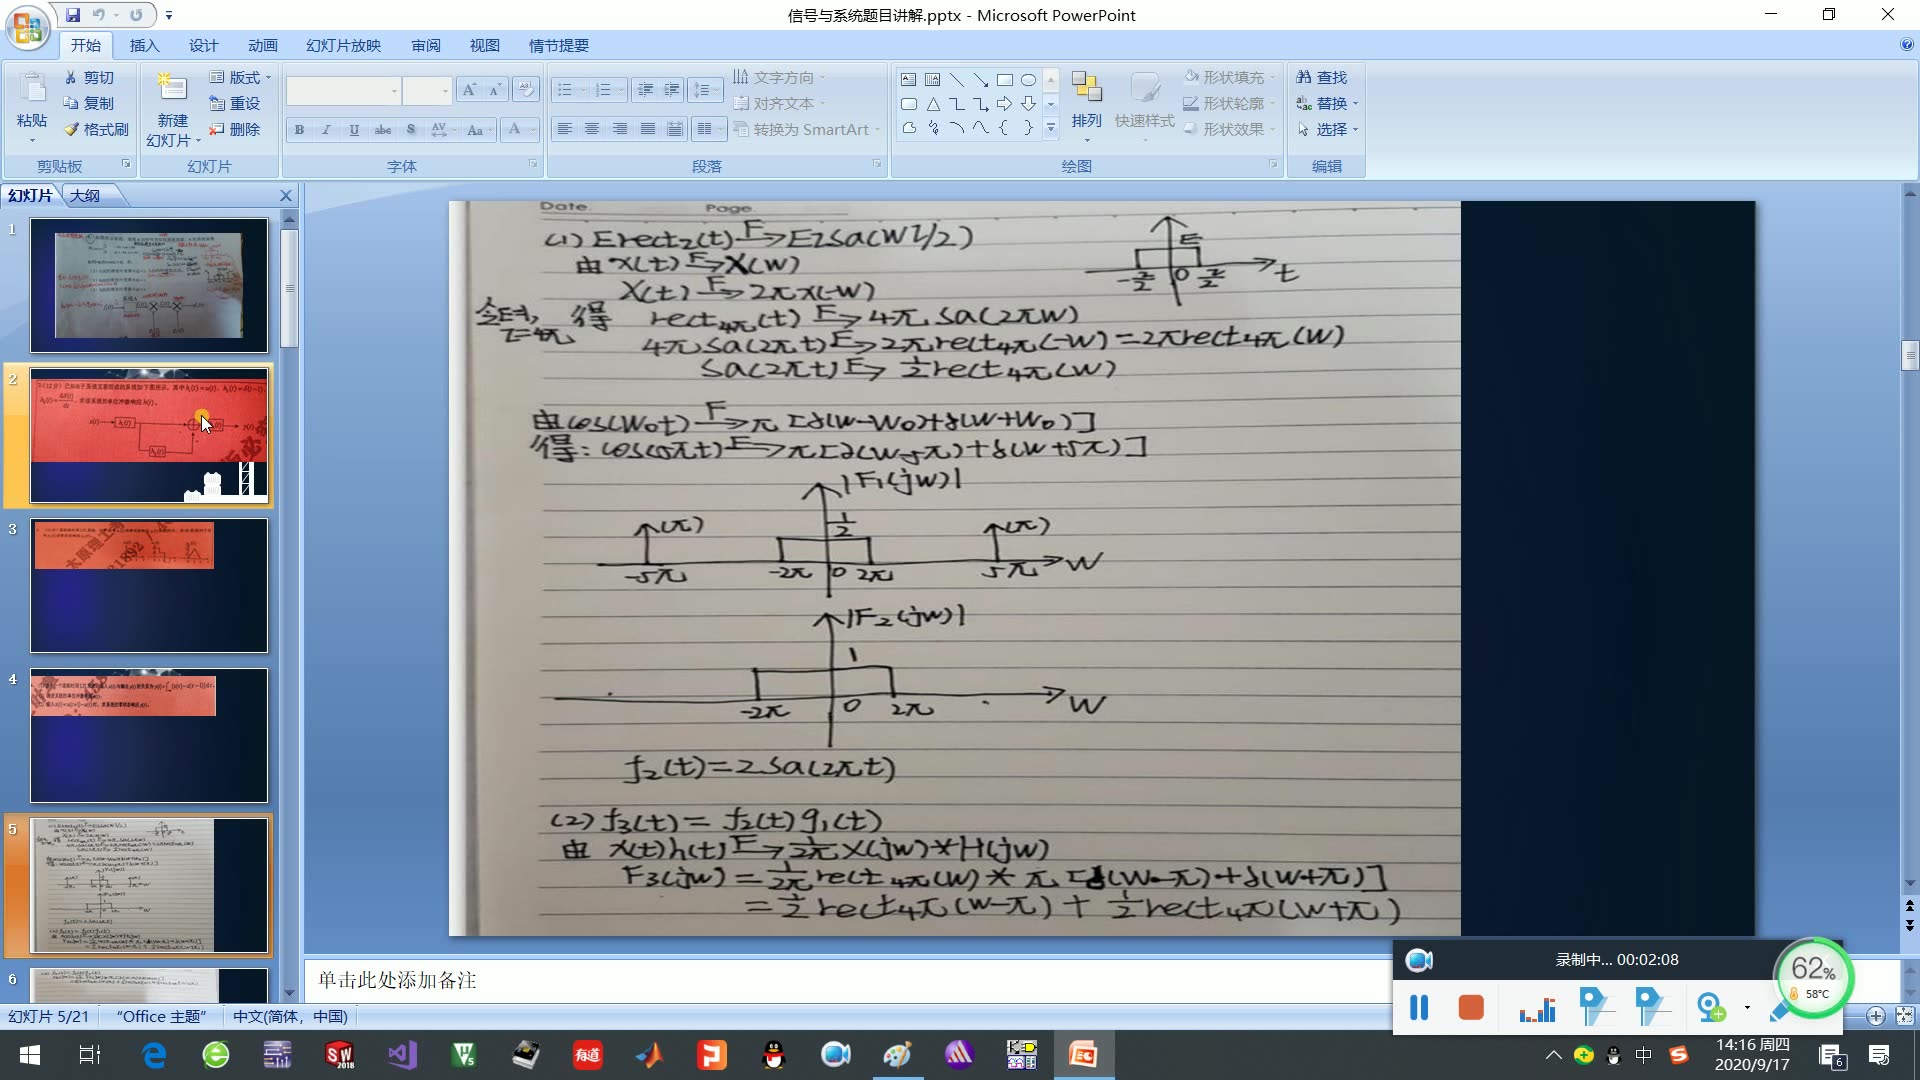 信号与系统题目讲解.pptx - Microsoft PowerPoint
开始 插入 设计 动画 幻灯片放映 审阅 视图 情节提要
剪切
复制
格式刷
粘贴
剪贴板
新建
幻灯片
版式
重设
删除
幻灯片
B I U abc S AV Aa A
字体
文字方向
对齐文本
转换为 SmartArt
段落
排列
快速样式
形状填充
形状轮廓
形状效果
绘图
查找
替换
选择
编辑
幻灯片 大纲
1
2
3
4
5
6
Date. Page.
(1) Erectτ(t) F→ EτSa(Wτ/2)
由 x(t) F→ X(W)
X(t) F→ 2πx(-W)
E
-τ/2 0 τ/2 t
令E=1,
τ=4π
得 rect4π(t) F→ 4π Sa(2πW)
4πSa(2πt) F→ 2πrect4π(-W)=2πrect4π(W)
Sa(2πt) F→ 1/2 rect4π(W)
由cos(W₀t) F→ π[δ(W-W₀)+δ(W+W₀)]
得: cos(5πt) F→ π[δ(W-5π)+δ(W+5π)]
|F₁(jW)|
(π) 1/2 (π)
-5π -2π 0 2π 5π W
|F₂(jW)|
1
-2π 0 2π W
f₂(t)=2Sa(2πt)
(2) f₃(t)= f₂(t)g₁(t)
由 x(t)h(t) F→ 1/2π X(jW)*H(jW)
F₃(jW)= 1/2π rect4π(W) * π[δ(W-π)+δ(W+π)]
= 1/2 rect4π(W-π) + 1/2 rect4π(W+π)
单击此处添加备注
录制中... 00:02:08
62%
58°C
幻灯片 5/21 “Office 主题” 中文(简体，中国)
SW
2018
有道
中
14:16 周四
2020/9/17
6